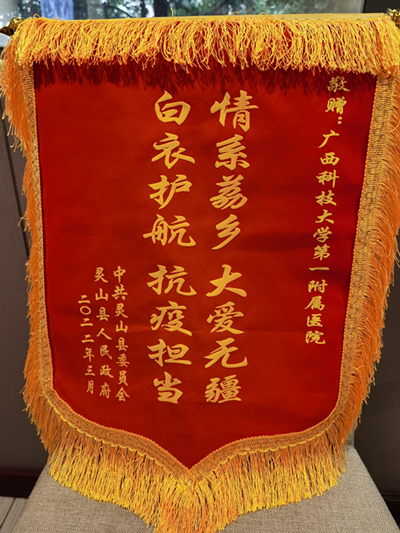 敬赠：广西科技大学第一附属医院
情系荔乡 大爱无疆
白衣护航 抗疫担当
中共灵山县委员会
灵山县人民政府
二〇二二年三月